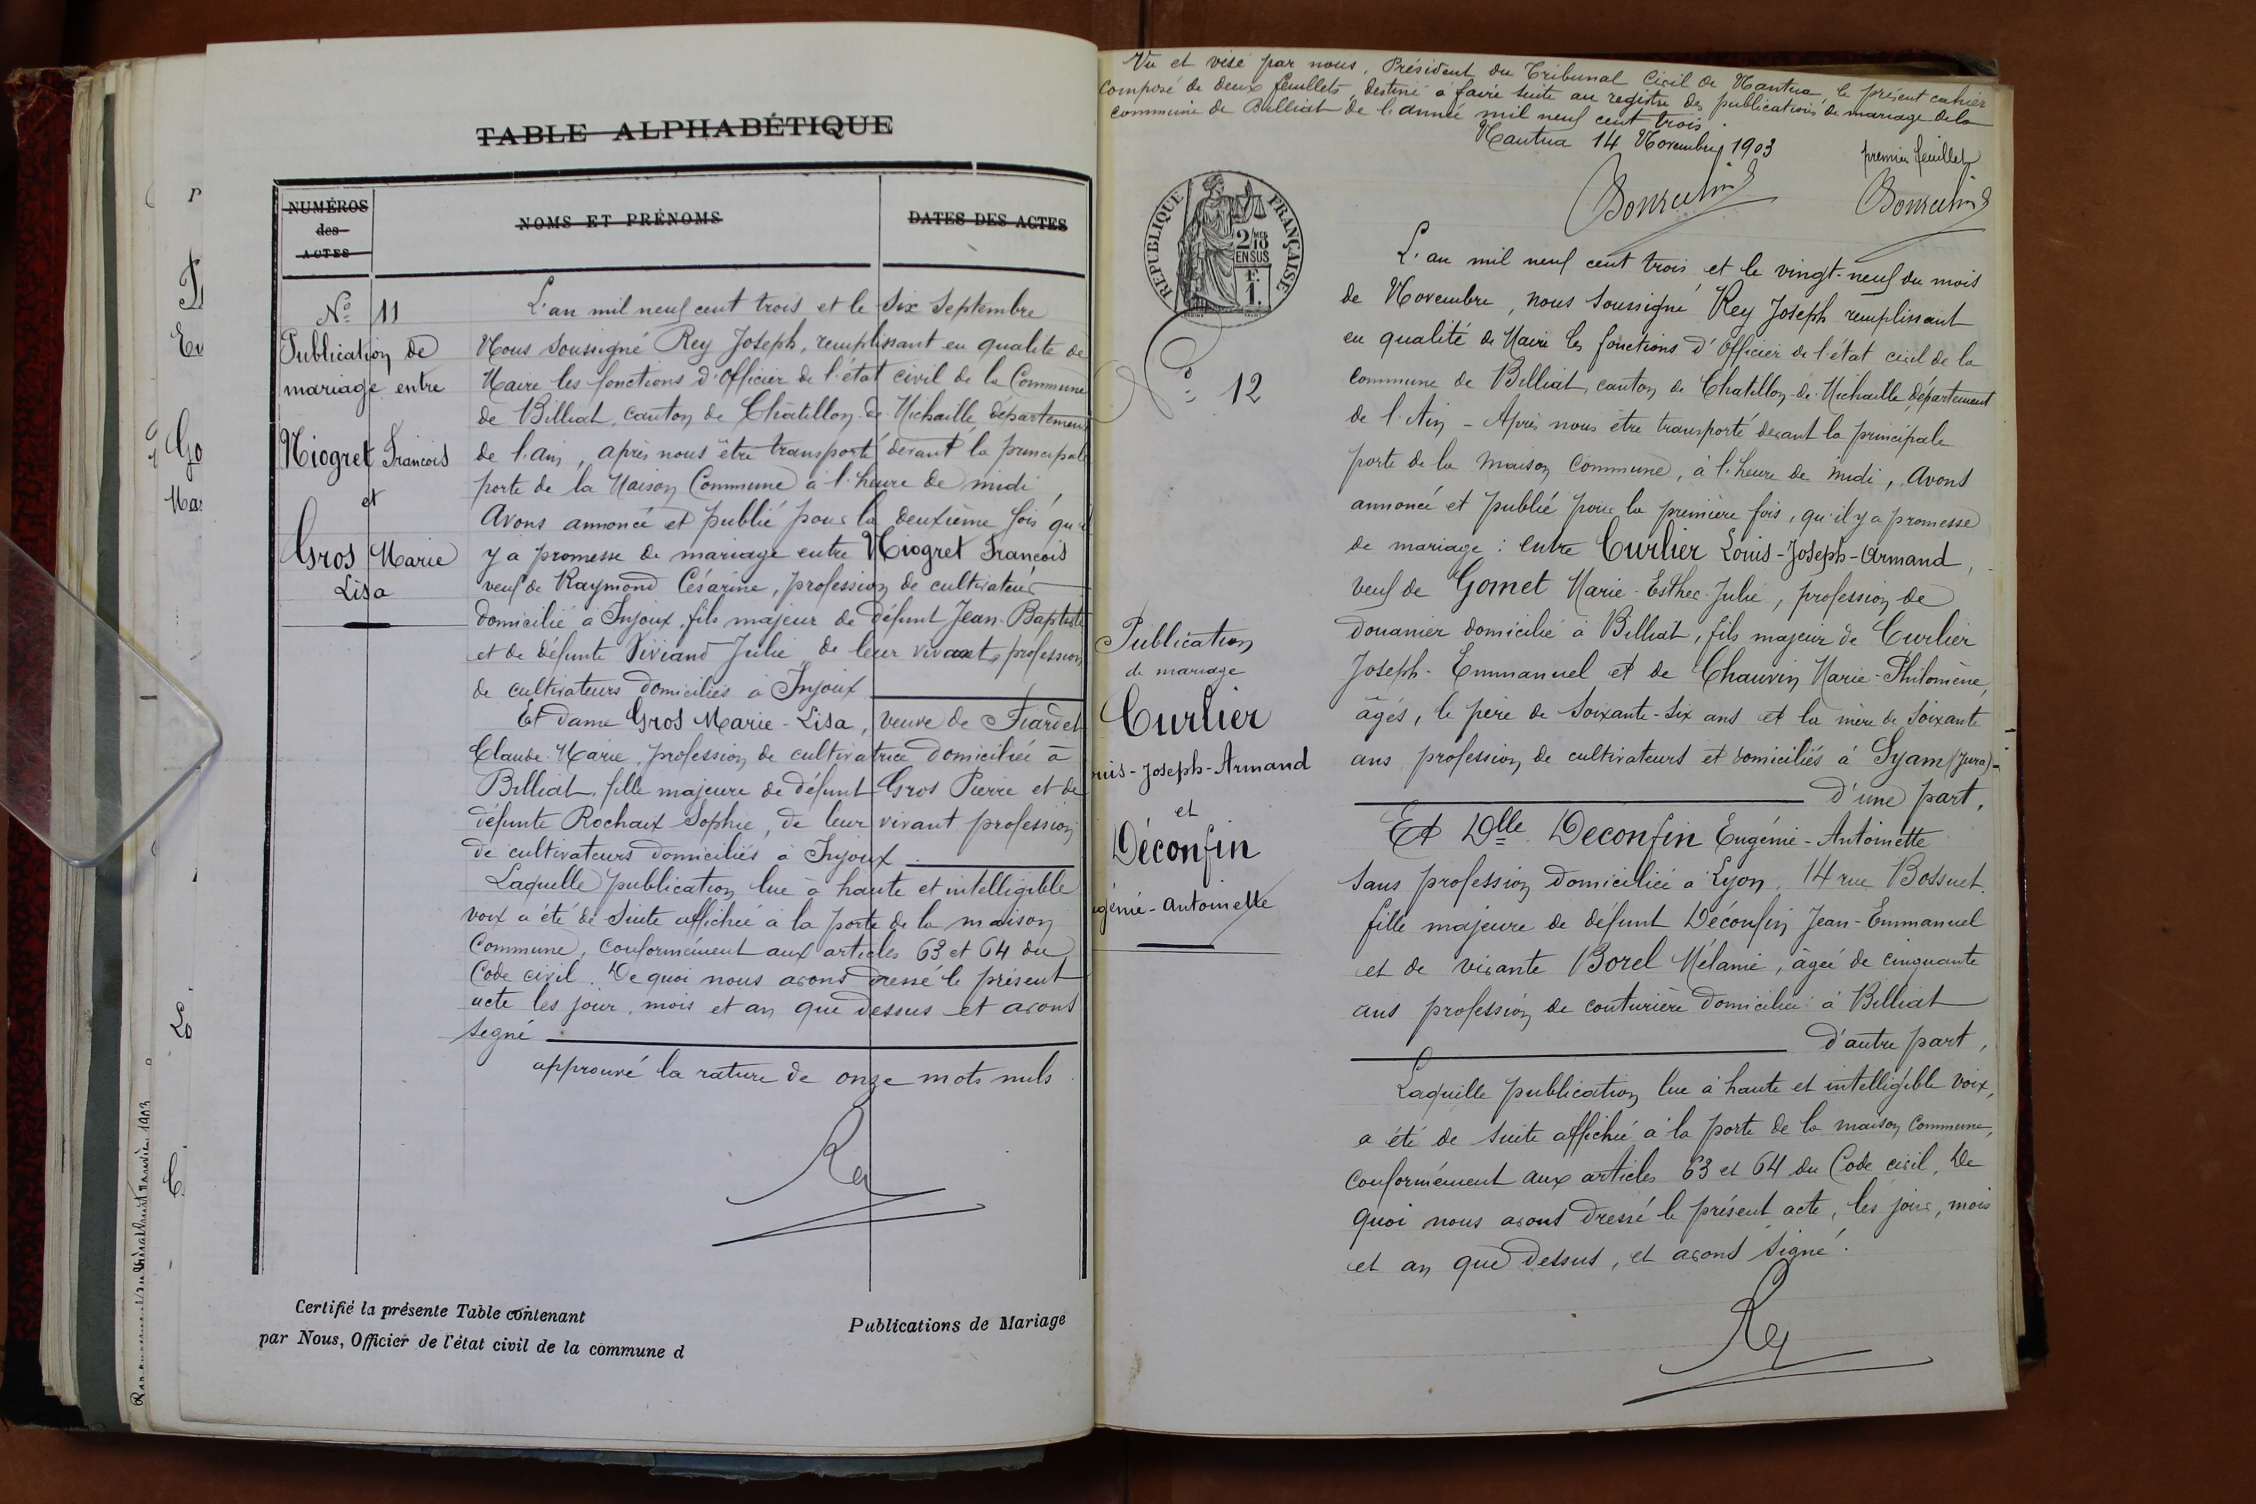 TABLE ALPHABÉTIQUE
NUMÉROS
des
ACTES
NOMS ET PRÉNOMS
DATES DES ACTES
No 11
Publication de
mariage entre
Niogret François
et
Gros Marie
Lisa
L'an mil neuf cent trois et le six Septembre
Nous soussigné Rey Joseph, remplissant en qualité de
Maire les fonctions d'Officier de l'état civil de la Commune
de Billiat, canton de Châtillon-de-Michaille, département
de l'ain, après nous être transporté devant la principale
porte de la Maison Commune à l'heure de midi,
Avons annoncé et publié pour la deuxième fois qu'il
y a promesse de mariage entre Niogret François
veuf de Raymond Césarine, profession de cultivateur
domicilié à Injoux, fils majeur de défunt Jean-Baptiste
et de défunte Viviand Julie de leur vivant, profession
de cultivateurs domiciliés à Injoux
Et dame Gros Marie-Lisa, veuve de
Claude-Marie, profession de cultivatrice domiciliée à
Billiat, fille majeure de défunt Gros Pierre et de
défunte Rochaix Sophie, de leur vivant profession
de cultivateurs domiciliés à Injoux
Laquelle publication lue à haute et intelligible
voix a été de suite affichée à la porte de la maison
Commune, conformément aux articles 63 et 64 du
Code civil. De quoi nous avons dressé le présent
acte les jour, mois et an que dessus et avons
signé
approuvé la rature de onze mots nuls
Rey
Certifié la présente Table contenant
par Nous, Officier de l'état civil de la commune d
Publications de Mariage
Vu et visé par nous, Président du Tribunal Civil de Nantua, le présent cahier
composé de deux feuillets, destiné à faire suite au registre des publications de mariage de la
commune de Billiat de l'année mil neuf cent trois.
Nantua 14 Novembre 1903
premier feuillet
RÉPUBLIQUE FRANÇAISE
2/10
EN SUS
F.
1.
No 12
Publication
de mariage
Curlier
uis-Joseph-Armand
et
Déconfin
génie-Antoinette
L'an mil neuf cent trois et le vingt-neuf du mois
de Novembre, nous soussigné Rey Joseph remplissant
en qualité de Maire les fonctions d'Officier de l'état civil de la
commune de Billiat, canton de Chatillon-de-Michaille, département
de l'Ain - Après nous être transporté devant la principale
porte de la maison commune, à l'heure de midi, Avons
annoncé et publié pour la première fois, qu'il y a promesse
de mariage : entre Curlier Louis-Joseph-Armand,
veuf de Gomet Marie-Esther-Julie, profession de
douanier domicilié à Billiat, fils majeur de Curlier
Joseph-Emmanuel et de Chauvin Marie-Philomène,
âgés, le père de soixante-six ans et la mère de soixante
ans profession de cultivateurs et domiciliés à Syam (Jura)-
d'une part,
Et Dlle Deconfin Eugénie-Antoinette
sans profession domiciliée à Lyon, 14 rue Bossuet.
fille majeure de défunt Déconfin Jean-Emmanuel
et de vivante Borel Mélanie, âgée de cinquante
ans profession de couturière domiciliée à Billiat
d'autre part,
Laquelle publication lue à haute et intelligible voix,
a été de suite affichée à la porte de la maison commune,
conformément aux articles 63 et 64 du Code civil. De
quoi nous avons dressé le présent acte, les jour, mois
et an que dessus, et avons signé.
Rey